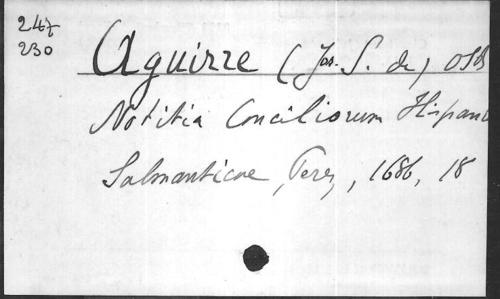 247
230
Aguirre (Jos. S. de) OSB
Notitia Conciliorum Hispan
Salmanticae, Perez, 1686, 18